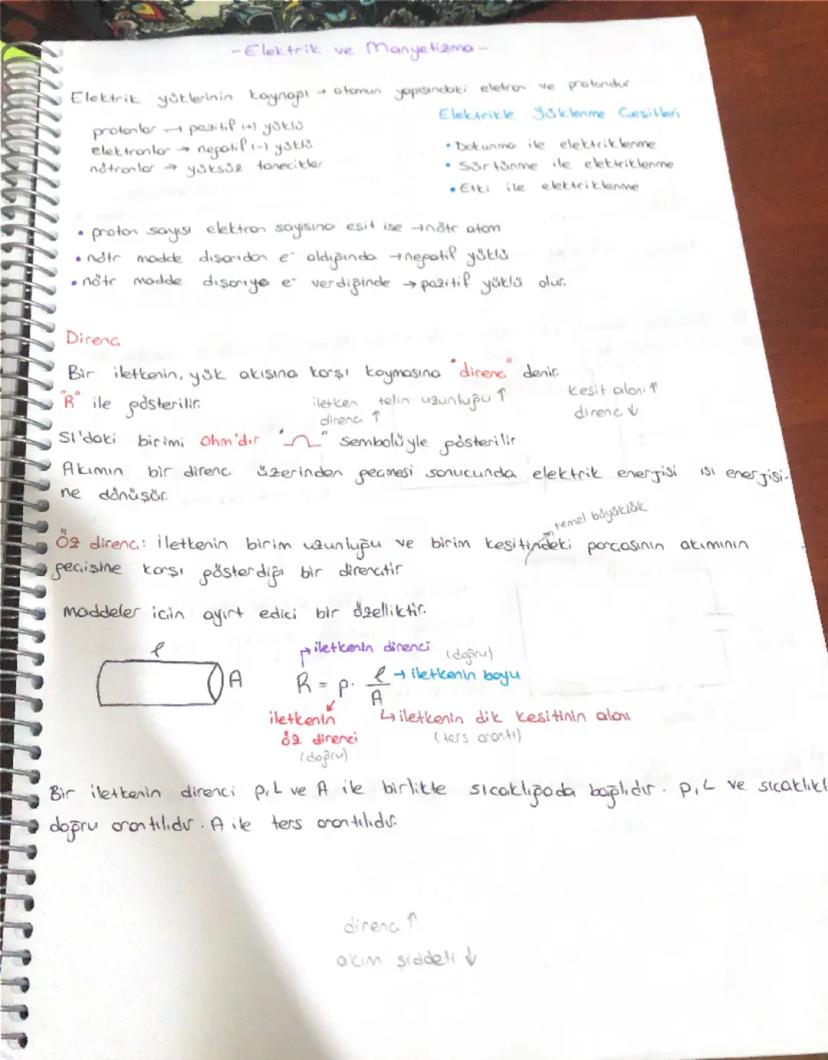 - Elektrik ve Manyetizma -
Elektrik yüklerinin kaynağı → atomun yapısındaki eletron ve protondur
protonlar → pozitif (+) yüklü
elektronlar → negatif (-) yüklü
nötronlar → yüksüz tanecikler
Elektrikle Yüklenme Çeşitleri
• Dokunma ile elektriklenme
• Sürtünme ile elektriklenme
• Etki ile elektriklenme
• proton sayısı elektron sayısına eşit ise → nötr atom
• nötr madde dışarıdan e⁻ aldığında → negatif yüklü
• nötr madde dışarıya e⁻ verdiğinde → pozitif yüklü olur.
Direnç
Bir iletkenin, yük akışına karşı koymasına "direnç" denir.
"R" ile gösterilir.
iletken telin uzunluğu ↑
direnç ↑
kesit alanı ↑
direnç ↓
SI'daki birimi Ohm'dır "Ω" sembolüyle gösterilir
Akımın bir direnç üzerinden geçmesi sonucunda elektrik enerjisi ısı enerjisi-
ne dönüşür.
temel büyüklük
Öz direnç: iletkenin birim uzunluğu ve birim kesitindeki parçasının akımının
geçişine karşı gösterdiği bir dirençtir
maddeler için ayırt edici bir özelliktir.
ℓ
A
iletkenin direnci
(doğru)
R = ρ. ℓ/A → iletkenin boyu
iletkenin öz direnci
(doğru)
↳ iletkenin dik kesitinin alanı
(ters orantı)
Bir iletkenin direnci ρ, L ve A ile birlikte sıcaklığada bağlıdır. ρ, L ve sıcaklıkl
doğru orantılıdır. A ile ters orantılıdır.
direnç ↑
akım şiddeti ↓